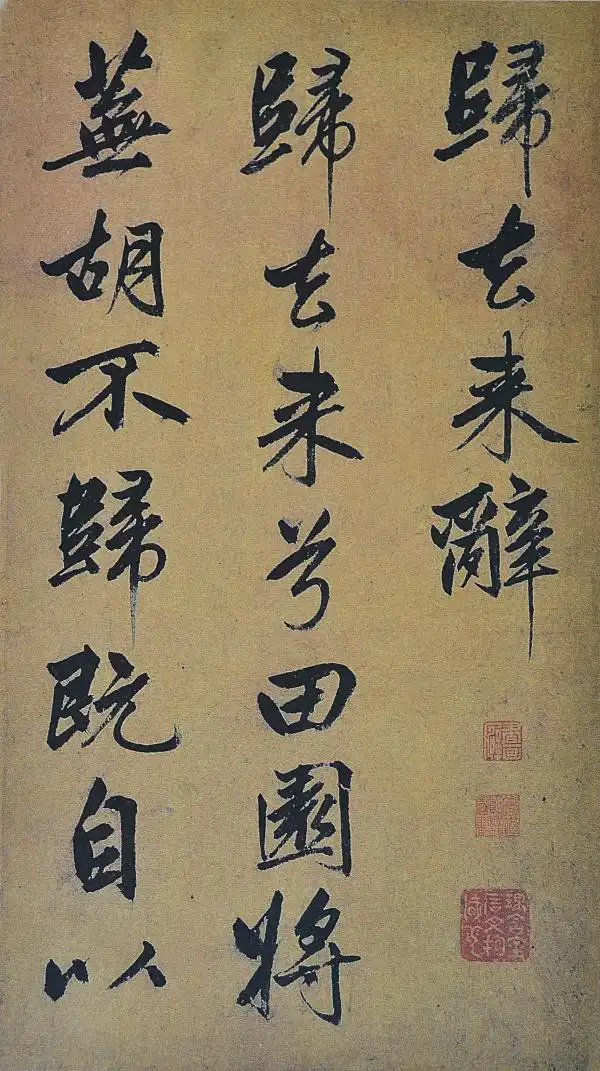 歸去来辭
歸去来兮田園將
蕪胡不歸既自以